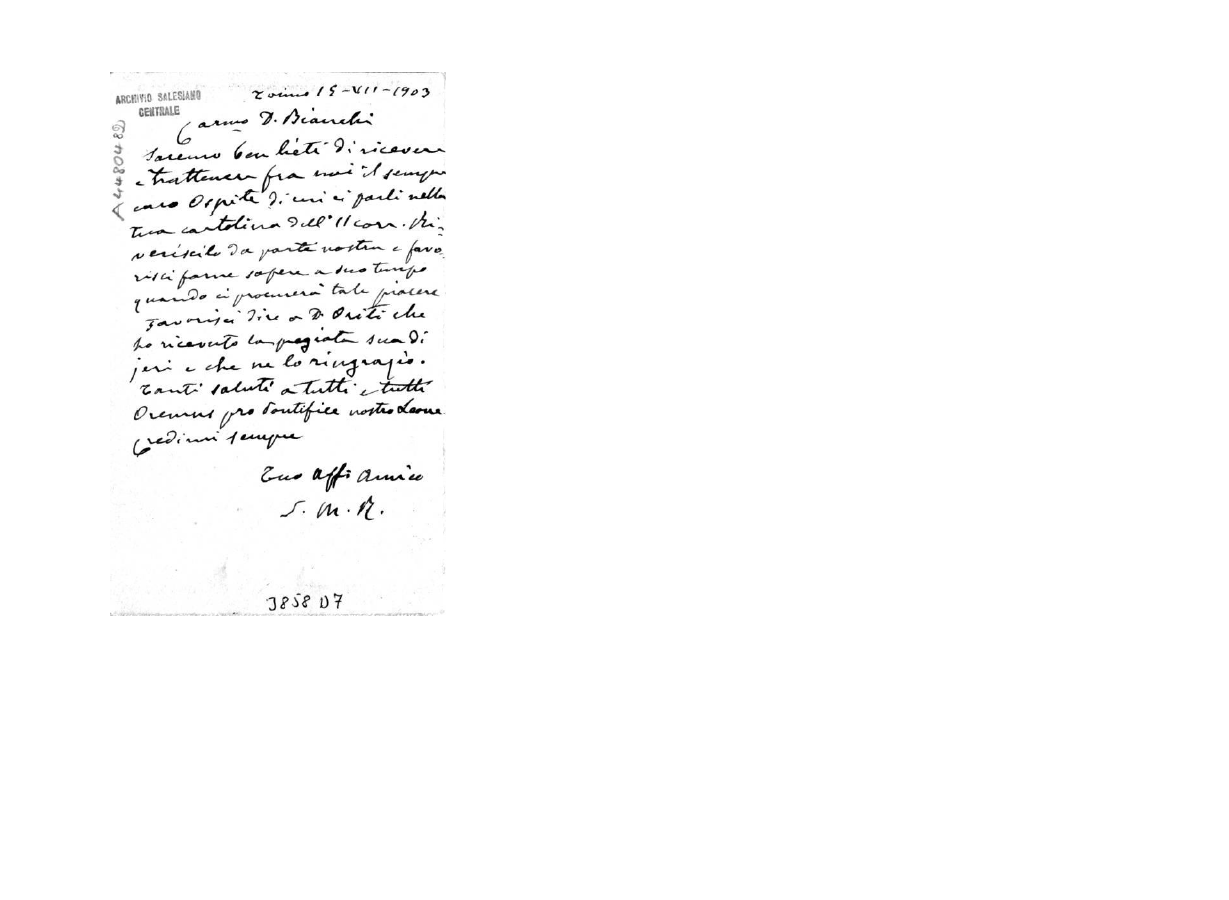 ARCHIVIO SALESIANO
CENTRALE
A4480482
Torino 15-VII-1903
Carmo D. Bianchi
Saremo ben lieti di ricevere
e trattenere fra noi il sempre
caro Ospite di cui ci parli nella
tua cartolina dell'11 corr. Ri-
veriscilo da parte nostra e favo
risci farne sapere a suo tempo
quando ci procurerà tale piacere
Favorisci dire a D. Oriti che
ho ricevuto la pregiata sua di
jeri e che ne lo ringrazio.
Tanti saluti a tutti e tutti
Oremus pro Pontifice nostro Leone
Credimi sempre
Tuo Affi Amico
S. M. R.
3858 D7